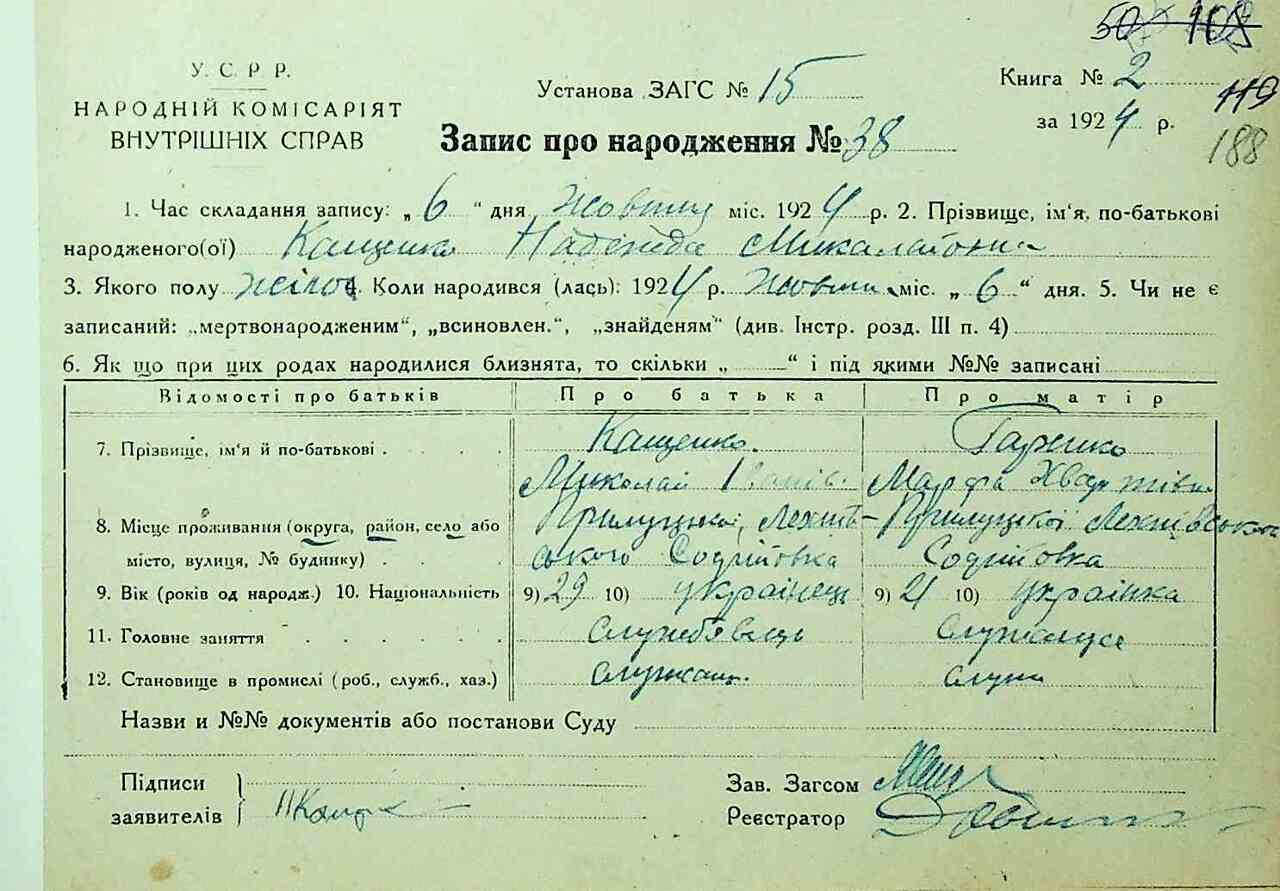 50 108
У. С. Р. Р.
НАРОДНІЙ КОМІСАРІЯТ
ВНУТРІШНІХ СПРАВ
Установа ЗАГС № 15
Книга № 2
за 1924 р.
119
188
Запис про народження № 38
1. Час складання запису: „ 6 “ дня Жовтня міс. 1924 р. 2. Прізвище, ім'я, по-батькові
народженого(ої) Кащенко Надежда Миколайовна
3. Якого полу жіноч. Коли народився (лась): 1924 р. Жовтня міс. „ 6 “ дня. 5. Чи не є
записаний: „мертвонародженим“, „всиновлен.“, „знайденям“ (див. Інстр. розд. III п. 4)
6. Як що при цих родах народилися близнята, то скільки „ “ і під якими №№ записані
Відомості про батьків Про батька Про матір
7. Прізвище, ім'я й по-батькові Кащенко Миколай Іванів.
Марфа
8. Місце проживання (округа, район, село або
місто, вулиця, № будинку)
Прилуцької, Софіївка
Прилуцької Софіївка
9. Вік (років од народж.) 10. Національність 9) 29 10) українець 9) 21 10) українка
11. Головне заняття Службовець
12. Становище в промислі (роб., служб., хаз.) служ
Назви и №№ документів або постанови Суду
Підписи
заявителів
Зав. Загсом
Реєстратор